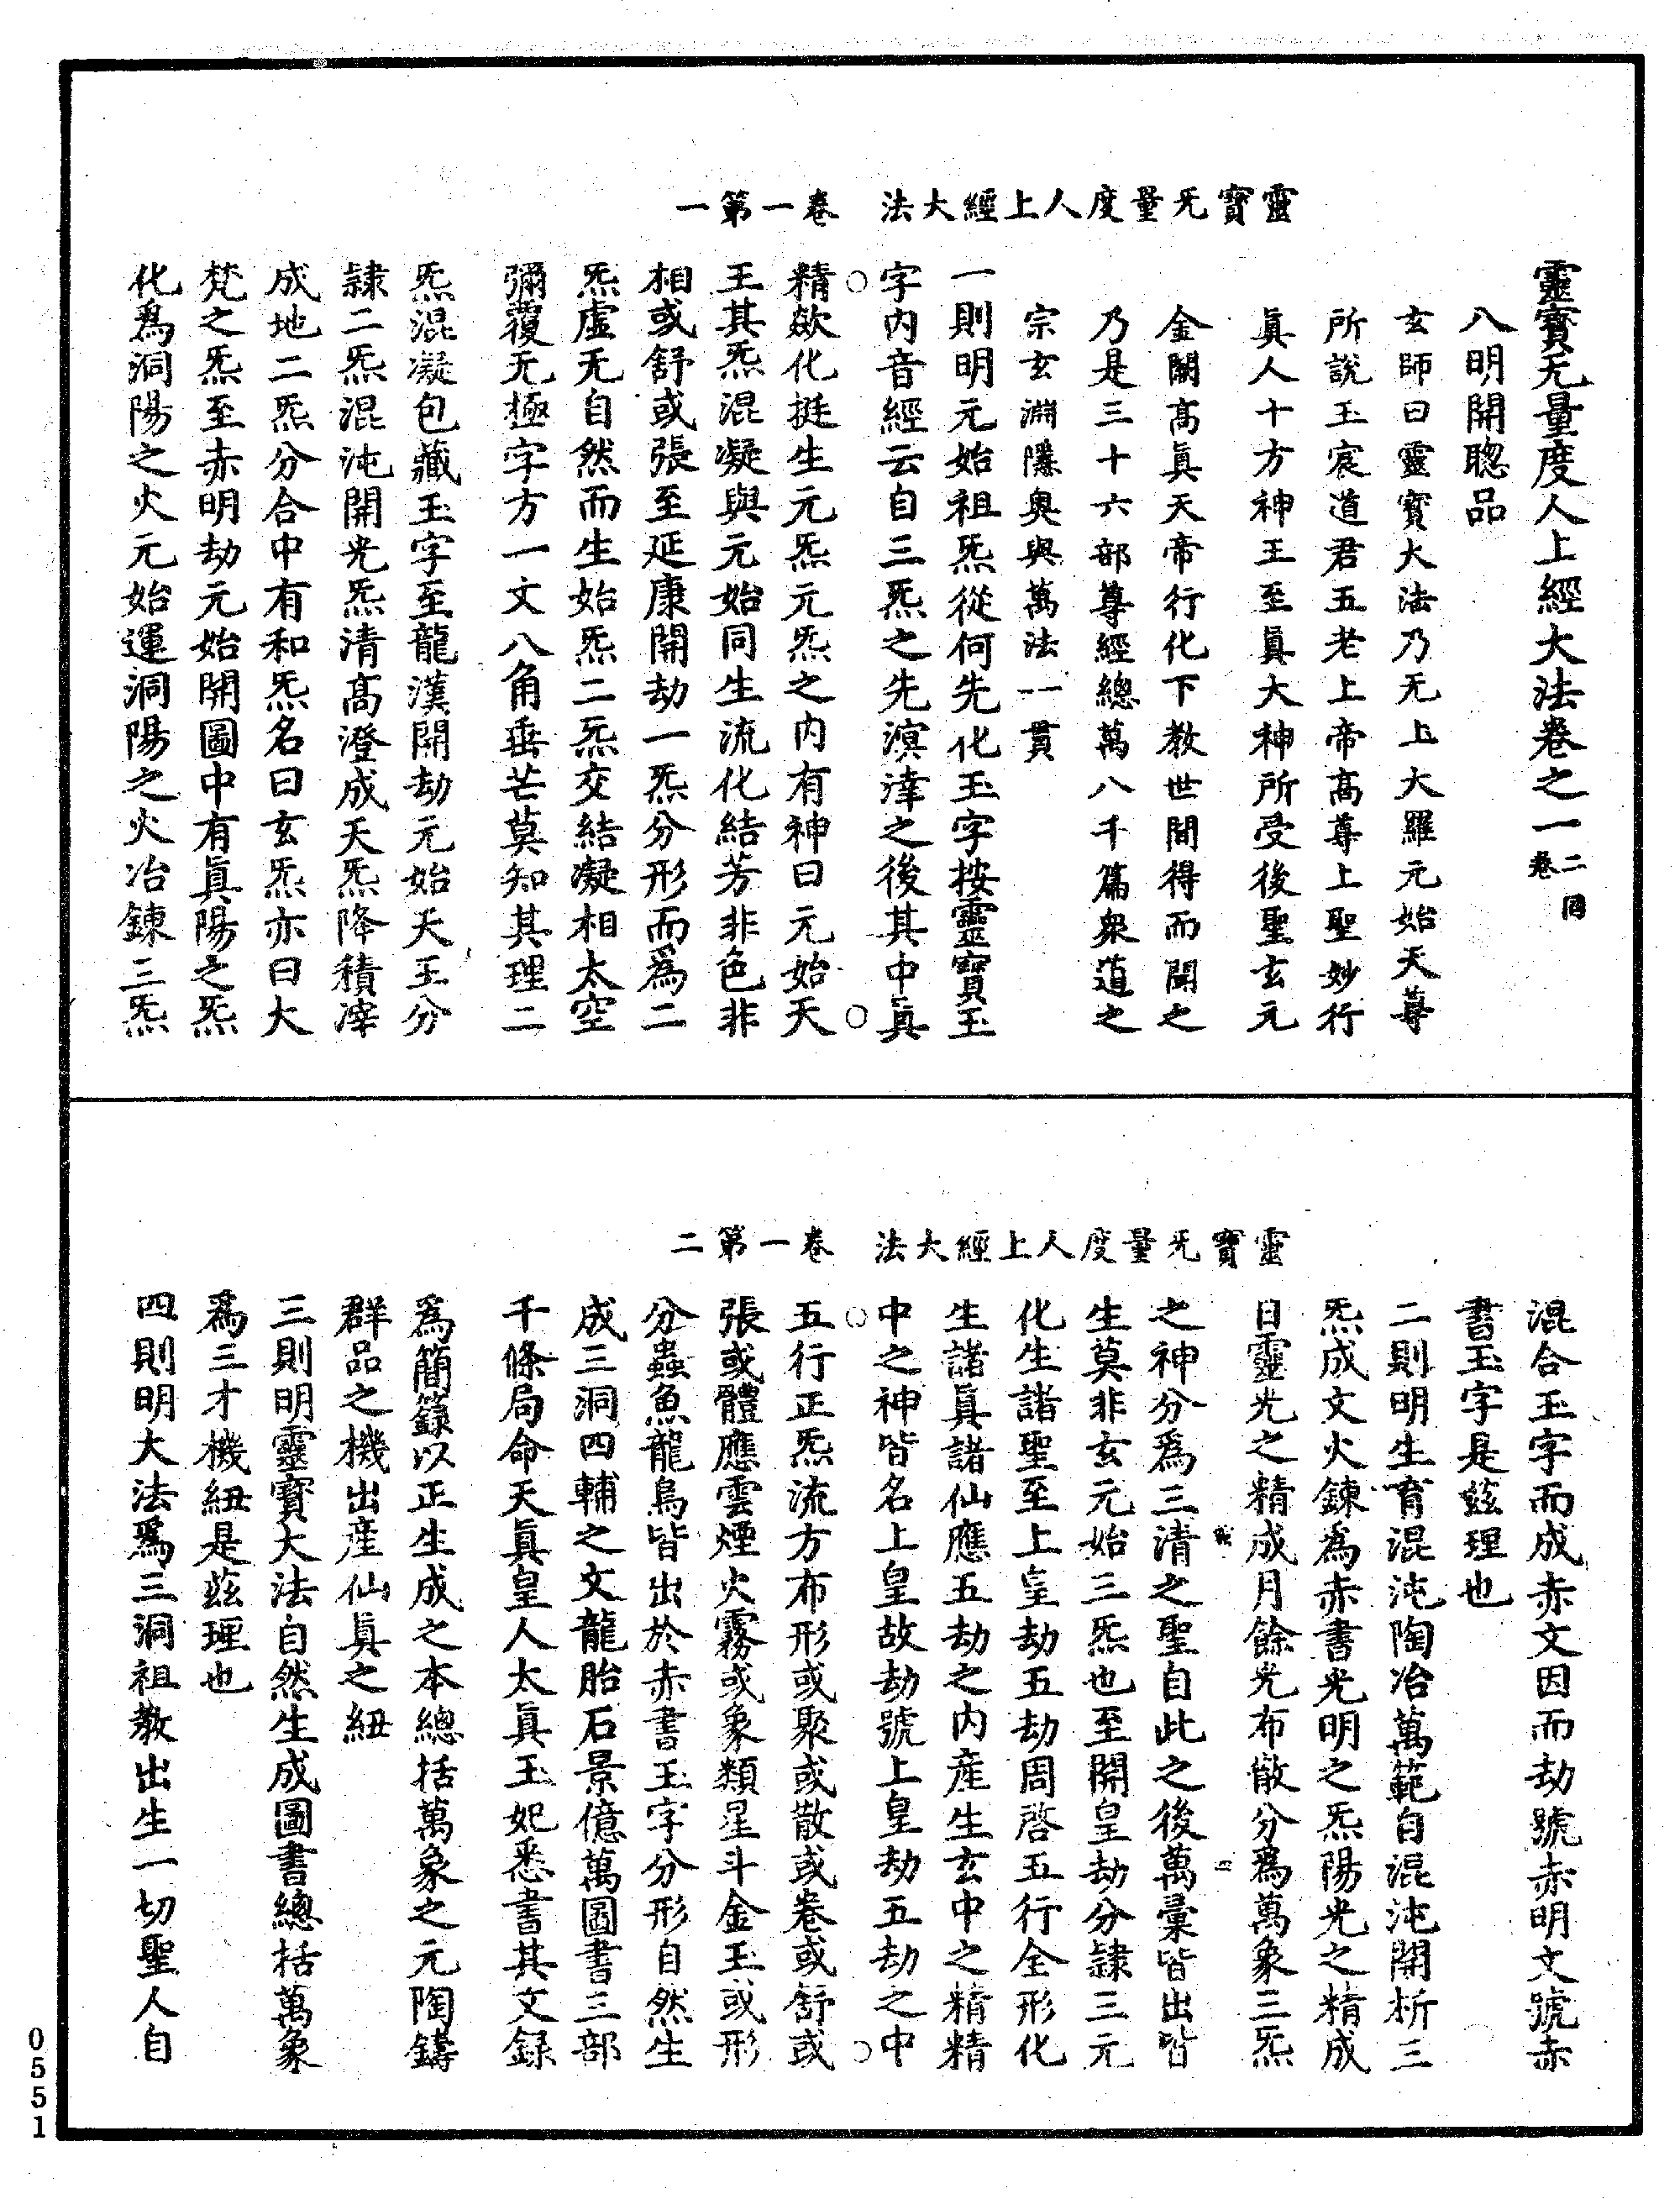 靈寶旡量度人上經大法　卷一第一
靈寶无量度人上經大法卷之一二卷同
八明開聰品
玄師曰靈寶大法乃无上大羅元始天尊
所說玉宸道君五老上帝高尊上聖妙行
眞人十方神王至眞大神所受後聖玄元
金闕高眞天帝行化下教世間得而聞之
乃是三十六部尊經總萬八千篇衆道之
宗玄淵隱奥與萬法一貫
一則明元始祖炁從何先化玉字按靈寶玉
字内音經云自三炁之先溟涬之後其中眞
精欻化挺生元炁元炁之内有神曰元始天
王其炁混凝與元始同生流化結芳非色非
相或舒或張至延康開劫一炁分形而爲二
炁虛无自然而生始炁二炁交結凝相太空
彌覆无極字方一文八角垂芒莫知其理二
炁混凝包藏玉字至龍漢開劫元始天王分
隷二炁混沌開光炁清高澄成天炁降積滓
成地二炁分合中有和炁名曰玄炁亦曰大
梵之炁至赤明劫元始開圖中有眞陽之炁
化爲洞陽之火元始運洞陽之火冶鍊三炁
靈寶旡量度人上經大法　卷一第二
混合玉字而成赤文因而劫號赤明文號赤
書玉字是兹理也
二則明生育混沌陶冶萬範自混沌開析三
炁成文火鍊爲赤書光明之炁陽光之精成
日靈光之精成月餘光布散分爲萬象三炁
之神分爲三清之聖自此之後萬彙皆出皆
生莫非玄元始三炁也至開皇劫分隷三元
化生諸聖至上皇劫五劫周啓五行全形化
生諸眞諸仙應五劫之内產生玄中之精精
中之神皆名上皇故劫號上皇劫五劫之中
五行正炁流方布形或聚或散或卷或舒或
張或體應雲煙火霧或象類星斗金玉或形
分蟲魚龍鳥皆出於赤書玉字分形自然生
成三洞四輔之文龍胎石景億萬圖書三部
千條局命天眞皇人太眞玉妃悉書其文録
爲簡籙以正生成之本總括萬象之元陶鑄
群品之機出產仙眞之紐
三則明靈寶大法自然生成圖書總括萬象
爲三才機紐是兹理也
四則明大法爲三洞祖教出生一切聖人自
0551